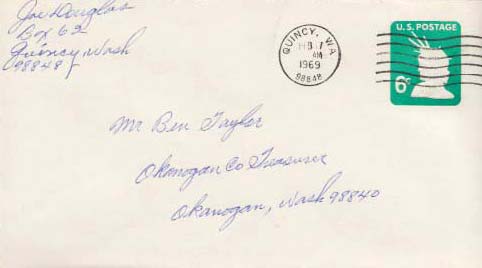 Joe Douglas
Box 62
Quincy, Wash
98848
QUINCY, WA
FEB 17
AM
1969
98848
U.S. POSTAGE
6¢
Mr Ben Taylor
Okanogan Co Treasurer
Okanogan, Wash 98840